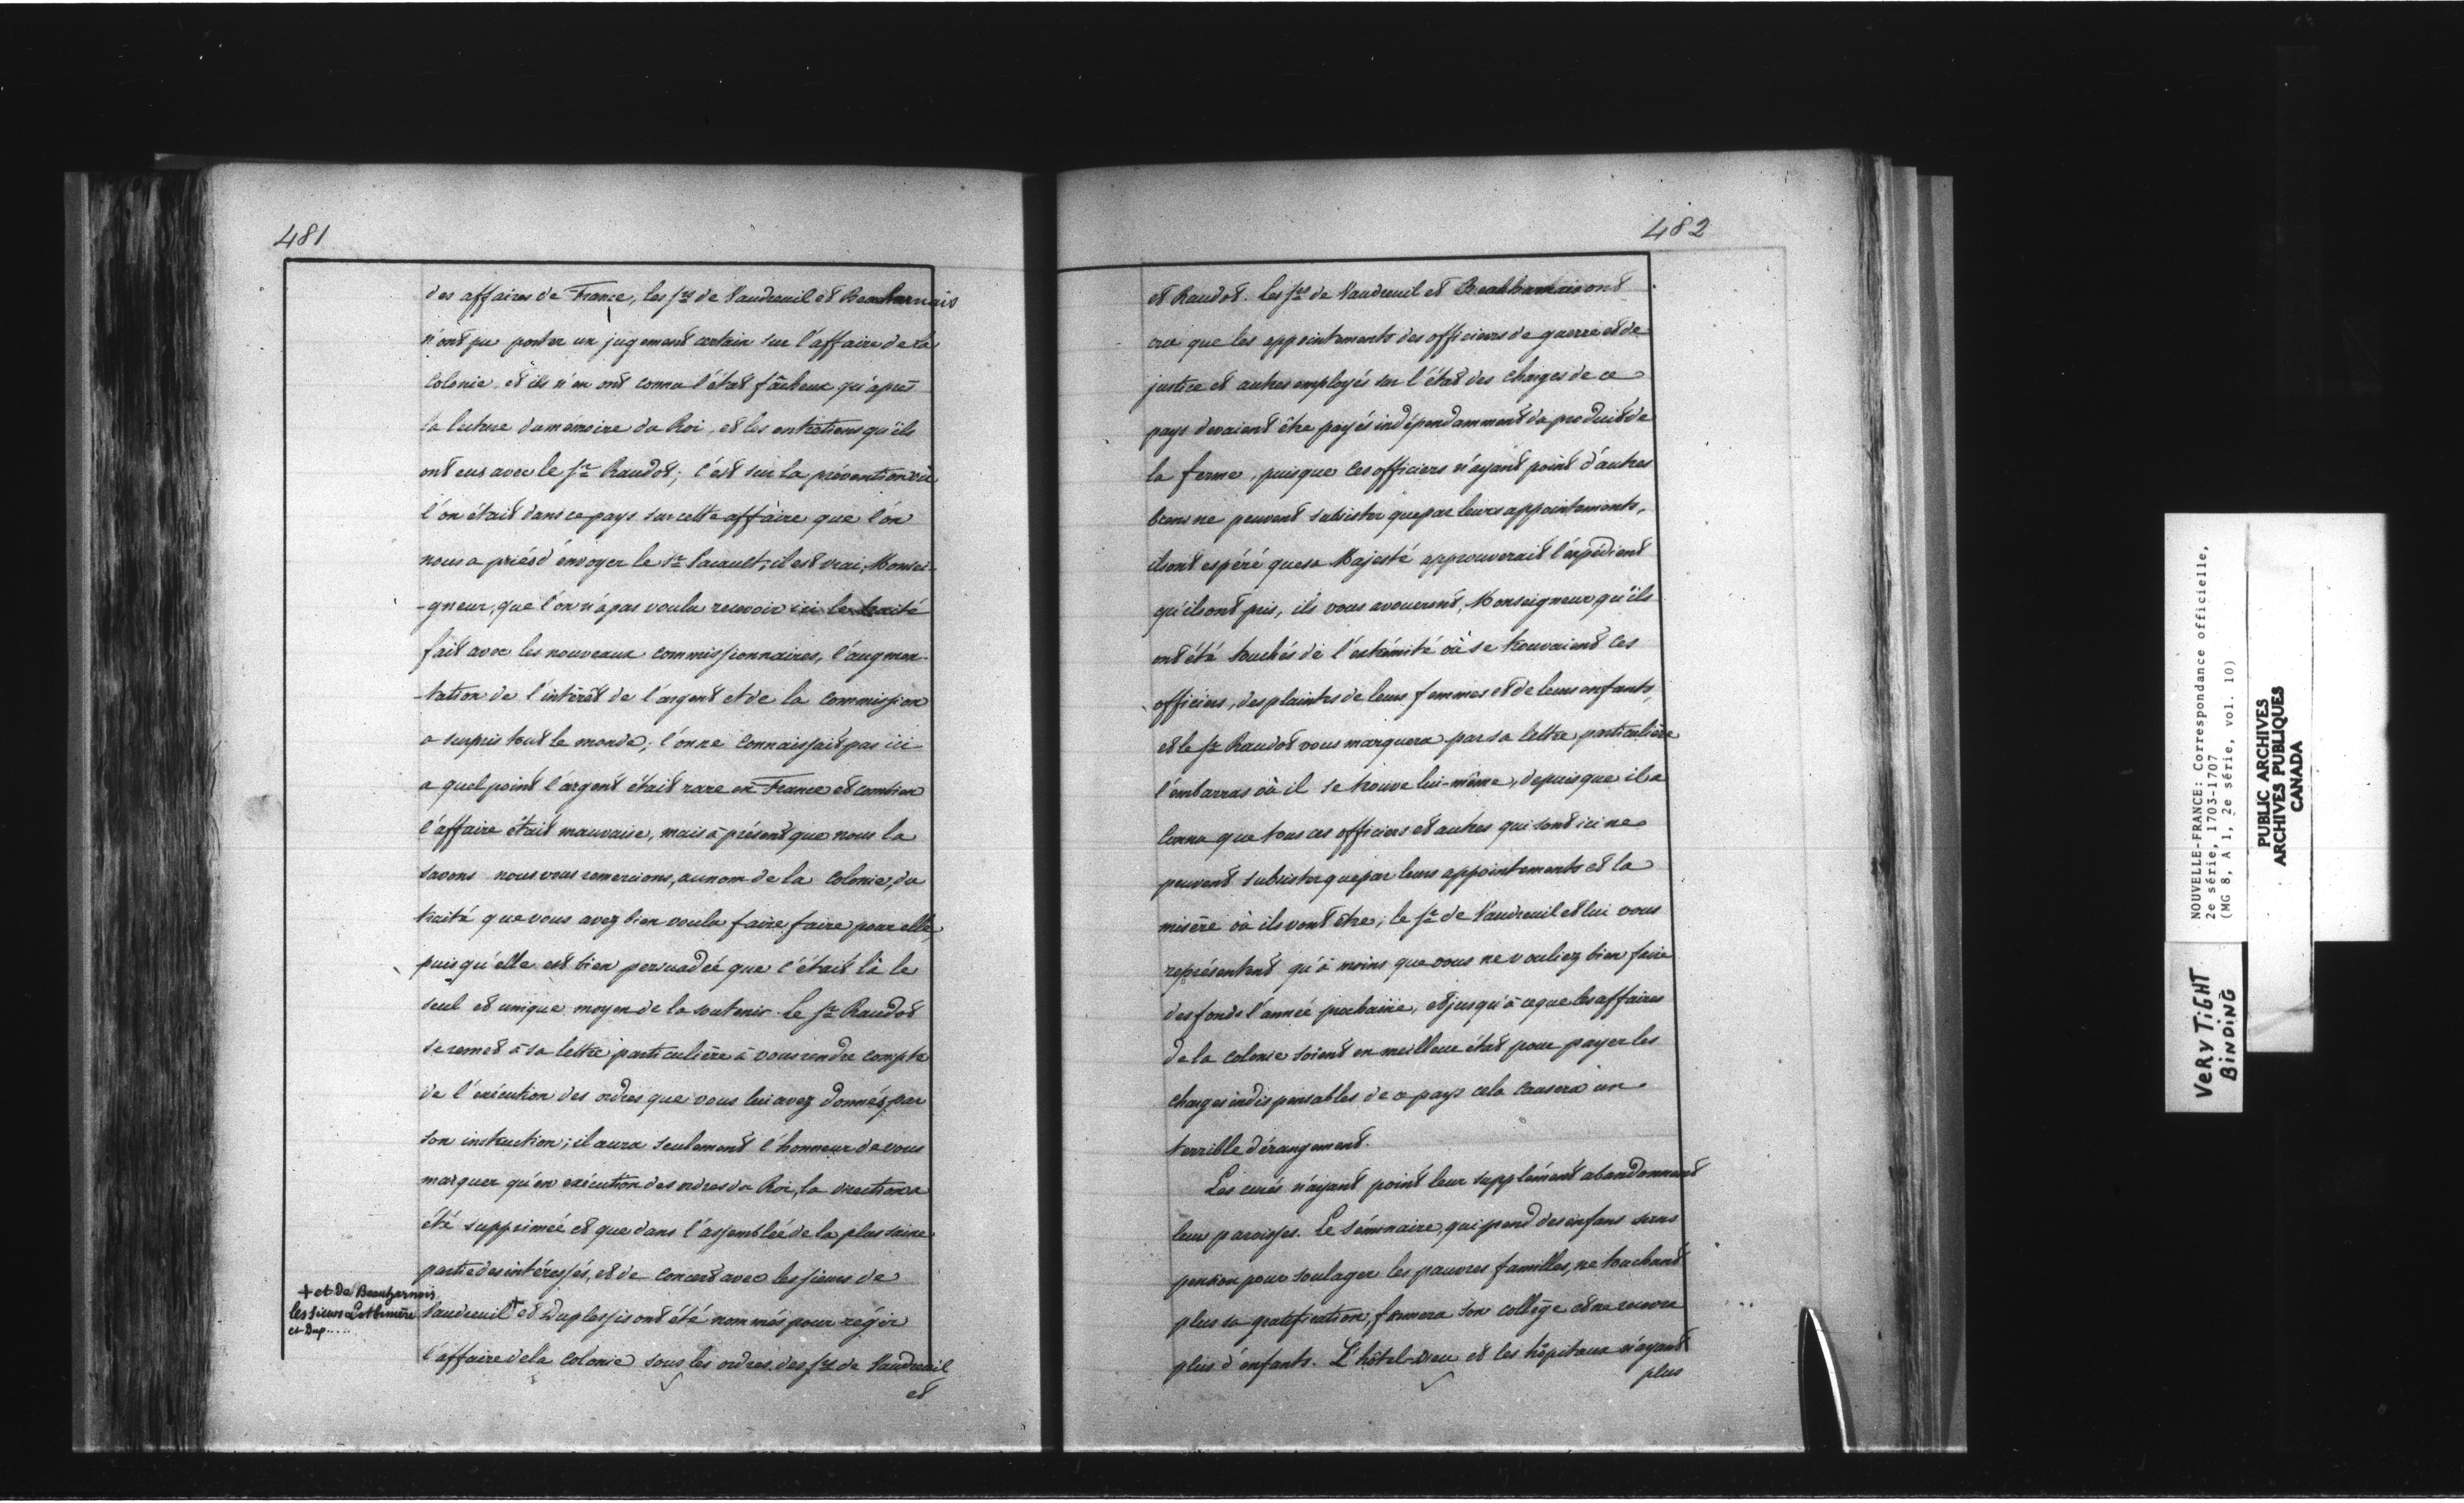 481
des affaires de France, les Srs de Vaudreuil et Beauharnais
n'ont pu porter un jugement certain sur l'affaire de la
Colonie et ils n'en ont connu l'état fâcheux qu'après
la lecture du mémoire du Roi, et les entretiens qu'ils
ont eus avec le Sr Raudot; c'est sur la prévention où
l'on était dans ce pays sur cette affaire que l'on
nous a priés d'envoyer le Sr Pacault; il est vrai, Monsei-
-gneur, que l'on n'a pas voulu recevoir ici le traité
fait avec les nouveaux commissionnaires, l'augmen-
-tation de l'intérêt de l'argent et de la commission
a surpris tout le monde; l'on ne connaissait pas ici
a quel point l'argent était rare en France et combien
l'affaire était mauvaise, mais à présent que nous la
savons nous vous remercions, au nom de la Colonie, du
traité que vous avez bien voulu faire faire pour elle,
puisqu'elle est bien persuadée que c'était là le
seul et unique moyen de la soutenir. Le Sr Raudot
se remet à sa lettre particulière à vous rendre compte
de l'exécution des ordres que vous lui avez donnés par
son instruction; il aura seulement l'honneur de vous
marquer qu'en exécution des ordres du Roi, la direction a
été supprimée et que dans l'assemblée de la plus saine
partie des intéressés, et de concert avec les sieurs de
Vaudreuil + et Duplessis ont été nommés pour régir
l'affaire de la Colonie sous les ordres des Srs de Vaudreuil
et
+ et de Beauharnois
les sieurs Lotbinière
et Dup.....
482
et Raudot. Les Srs de Vaudreuil et Beauharnais ont
cru que les appointements des officiers de guerre et de
justice et autres employés sur l'état des charges de ce
pays devaient être payés indépendamment du produit de
la ferme, puisque ces officiers n'ayant point d'autres
biens ne peuvent subsister que par leurs appointements,
ils ont espéré que sa Majesté approuverait l'expédient
qu'ils ont pris, ils vous avoueront, Monseigneur, qu'ils
ont été touchés de l'extrémité où se trouvaient ces
officiers, des plaintes de leurs femmes et de leurs enfants,
et le Sr Raudot vous marquera par sa lettre particulière
l'embarras où il se trouve lui-même, depuis que il a
connu que tous ces officiers et autres qui sont ici ne
peuvent subsister que par leurs appointements et la
misère où ils vont être; le Sr de Vaudreuil et lui vous
représentent qu'à moins que vous ne vouliez bien faire
des fonds l'année prochaine, et jusqu'à ce que les affaires
de la colonie soient en meilleur état pour payer les
charges indispensables de ce pays cela causera un
terrible dérangement.
Les curés n'ayant point leur supplément abandonneront
leurs paroisses. Le séminaire, qui prend des enfans sans
pension pour soulager les pauvres familles, ne touchant
plus sa gratification, fermera son collège et ne recevra
plus d'enfants. L'hôtel-Dieu et les hôpitaux n'ayant
plus
NOUVELLE-FRANCE: Correspondance officielle,
2e série, 1703-1707
(MG 8, A 1, 2e série, vol. 10)
PUBLIC ARCHIVES
ARCHIVES PUBLIQUES
CANADA
VERY TIGHT
BINDING